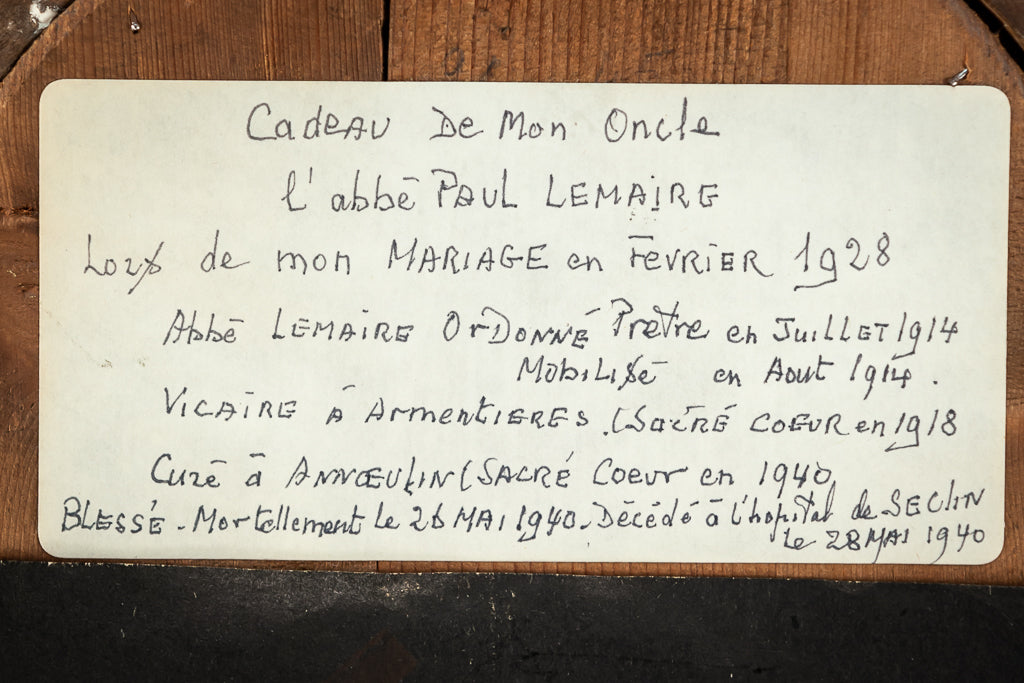 Cadeau De Mon Oncle
l'abbé PAUL LEMAIRE
Lors de mon MARIAGE en FEVRIER 1928
Abbé LEMAIRE OrDONNÉ Prêtre en JuiLLET 1914
MObiLiSé en Aout 1914.
VICAIRE à ArmentIERES. (SACRÉ COEUR en 1918
Curé à ANNŒULIN (SACRÉ Coeur en 1940
BLESSÉ - Mortellement Le 26 MAI 1940. Décédé à l'hopital de SECLIN
Le 28 MAI 1940